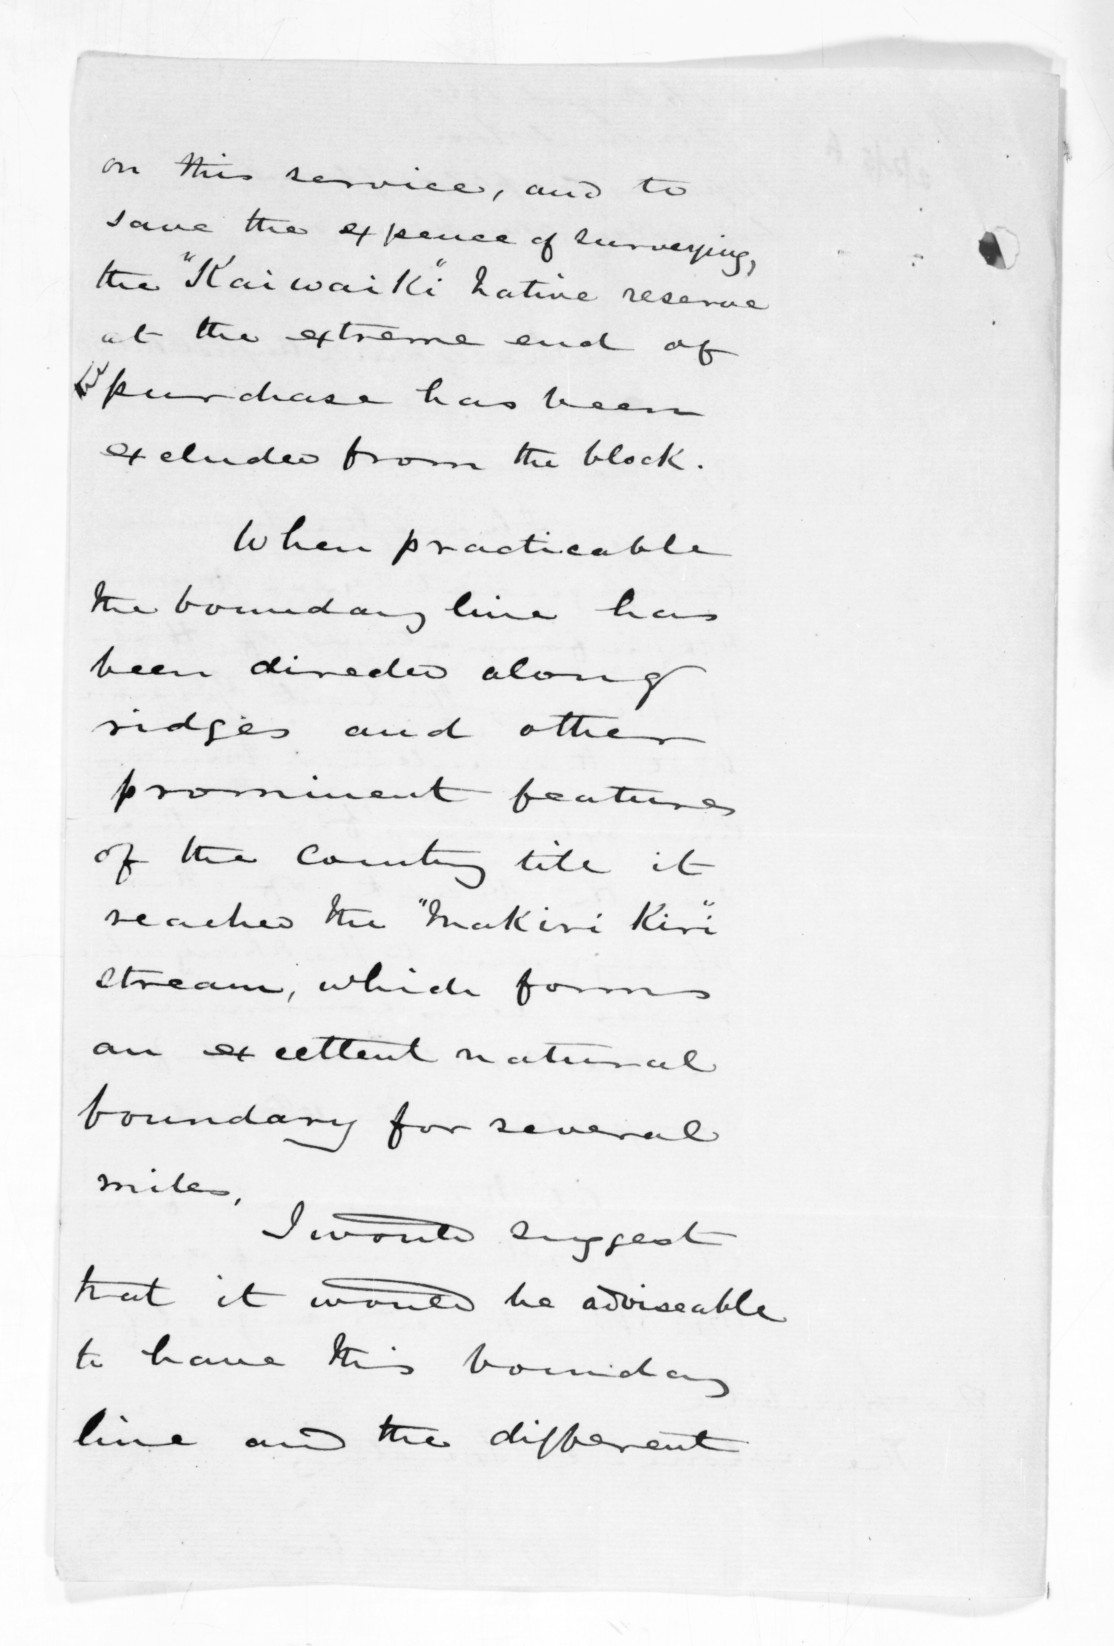 on this service, and to
save the expence of surveying,
the "Kaiwaiki" Native reserve
at the extreme end of
purchase has been
excluded from the block.
When practicable
the boundary line has
been directed along
ridges and other
prominent features
of the country till it
reaches the "Makiri Kiri"
stream, which forms
an excellent natural
boundary for several
miles,
I would suggest
that it would be adviseable
to have this boundary
line and the different